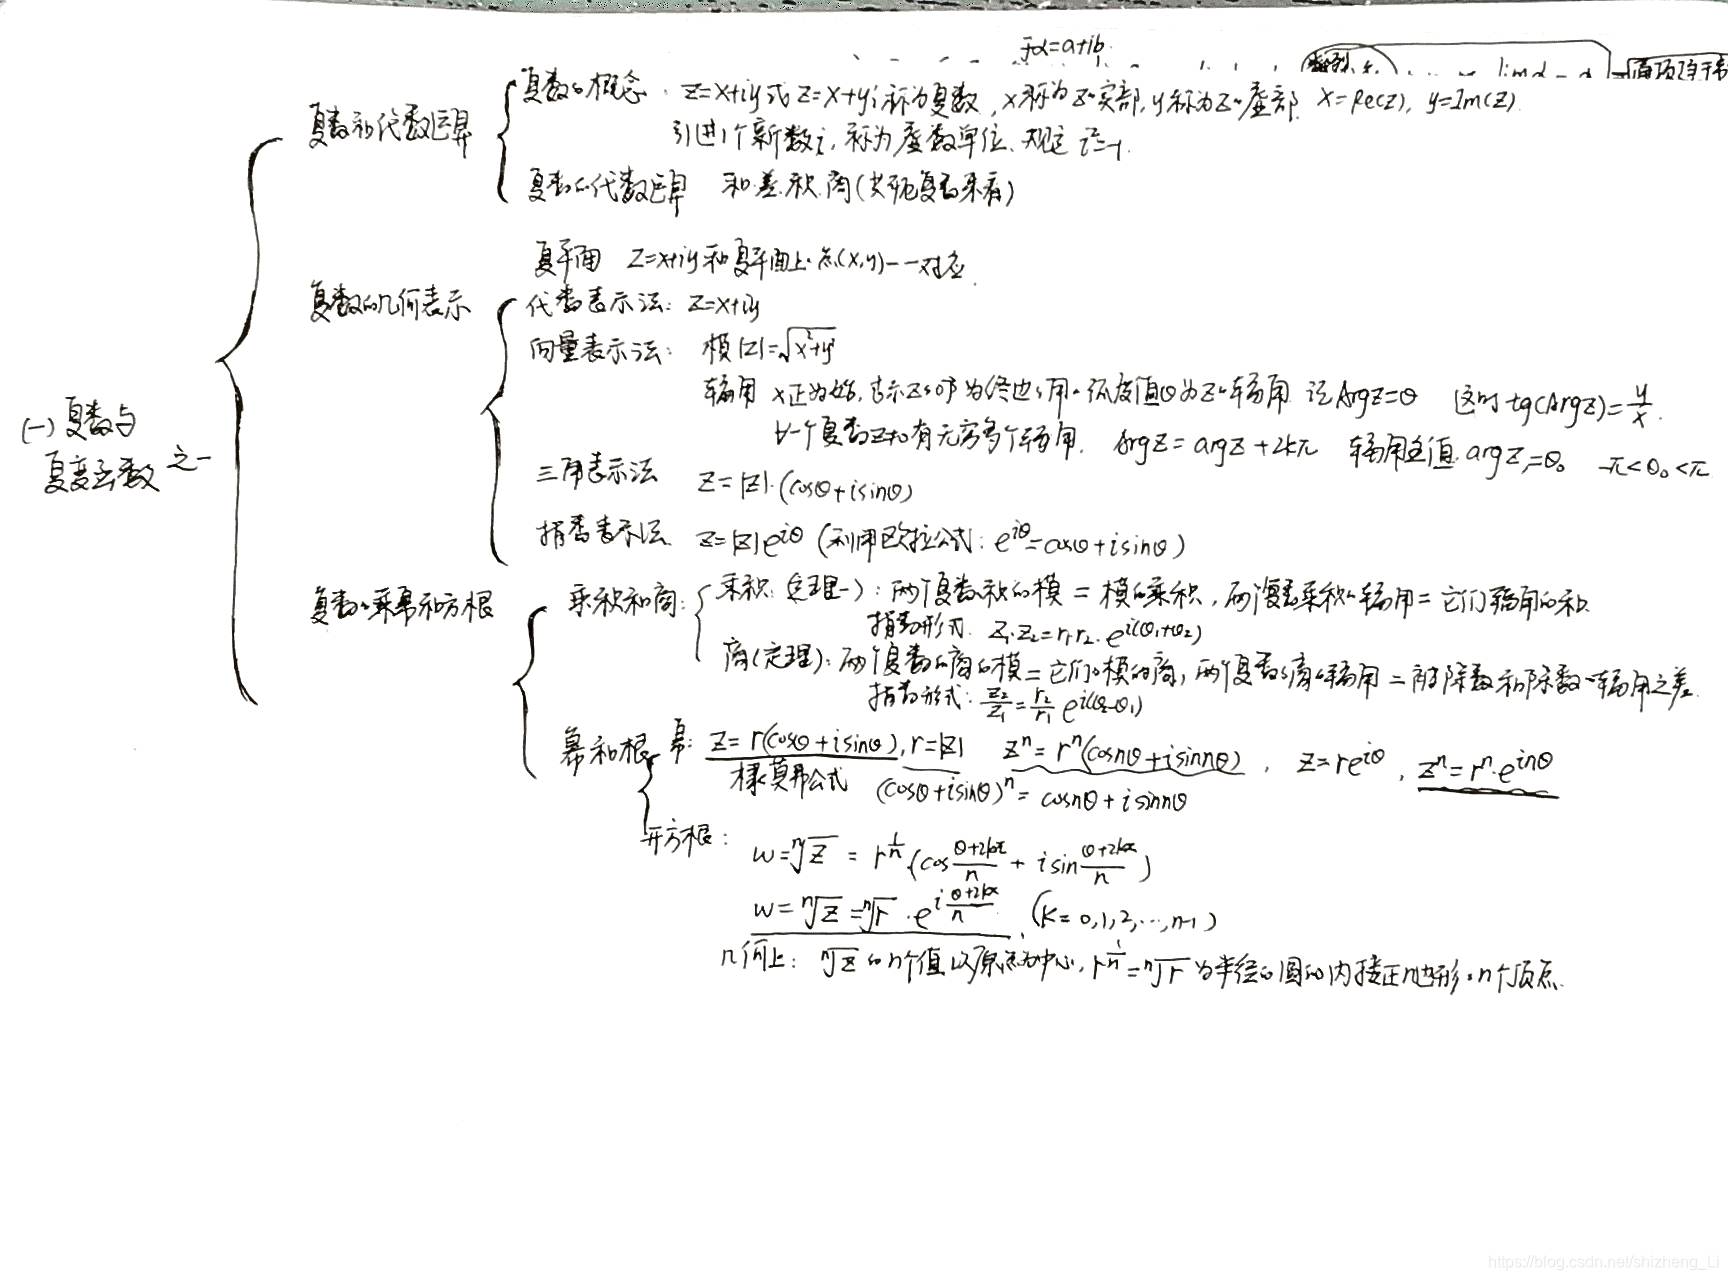 于α=a+ib
复数和代数运算
复数的概念: z=x+iy或z=x+yi称为复数, x称为z的实部, y称为z的虚部. x=Re(z), y=Im(z).
引进1个新数i, 称为虚数单位、规定 i²=-1.
复数的代数运算 和.差.积.商(共轭复数来看)
复平面 z=x+iy和复平面上的点(x,y)一一对应.
复数的几何表示
代数表示法: z=x+iy
向量表示法: 模|z|=√(x²+y²)
辐角 x正为始, 表示z的OP为终边的角的弧度值θ为z的辐角. 记Argz=θ 这时tg(Argz)=y/x.
(一)复数与复变函数之一
∀一个复数z≠0有无穷多个辐角. Argz=argz+2kπ 辐角主值.argz=θ₀ -π<θ₀<π
三角表示法 z=|z|·(cosθ+isinθ)
指数表示法 z=|z|e^{iθ} (利用欧拉公式: e^{iθ}=cosθ+isinθ)
复数的乘幂和方根
乘积和商:
乘积:(定理一): 两个复数乘积的模=模的乘积, 两个复数乘积的辐角=它们辐角的和.
指数形式. z₁·z₂=r₁·r₂·e^{i(θ₁+θ₂)}
商(定理): 两个复数的商的模=它们的模的商, 两个复数的商的辐角=被除数和除数的辐角之差.
指数形式: z₂/z₁=r₂/r₁ e^{i(θ₂-θ₁)}
幂和根
幂: z=r(cosθ+isinθ), r=|z| zⁿ=rⁿ(cosnθ+isinnθ), z=re^{iθ}, zⁿ=rⁿ·e^{inθ}
棣莫弗公式 (cosθ+isinθ)ⁿ=cosnθ+isinnθ
开方根:
w=ⁿ√z=r^{1/n}(cos (θ+2kπ)/n + isin (θ+2kπ)/n)
w=ⁿ√z=ⁿ√r·e^{i (θ+2kπ)/n}. (k=0,1,2,…,n-1)
几何上: ⁿ√z的n个值以原点为中心, r^{1/n}=ⁿ√r为半径的圆的内接正n边形的n个顶点.
https://blog.csdn.net/shizheng_Li